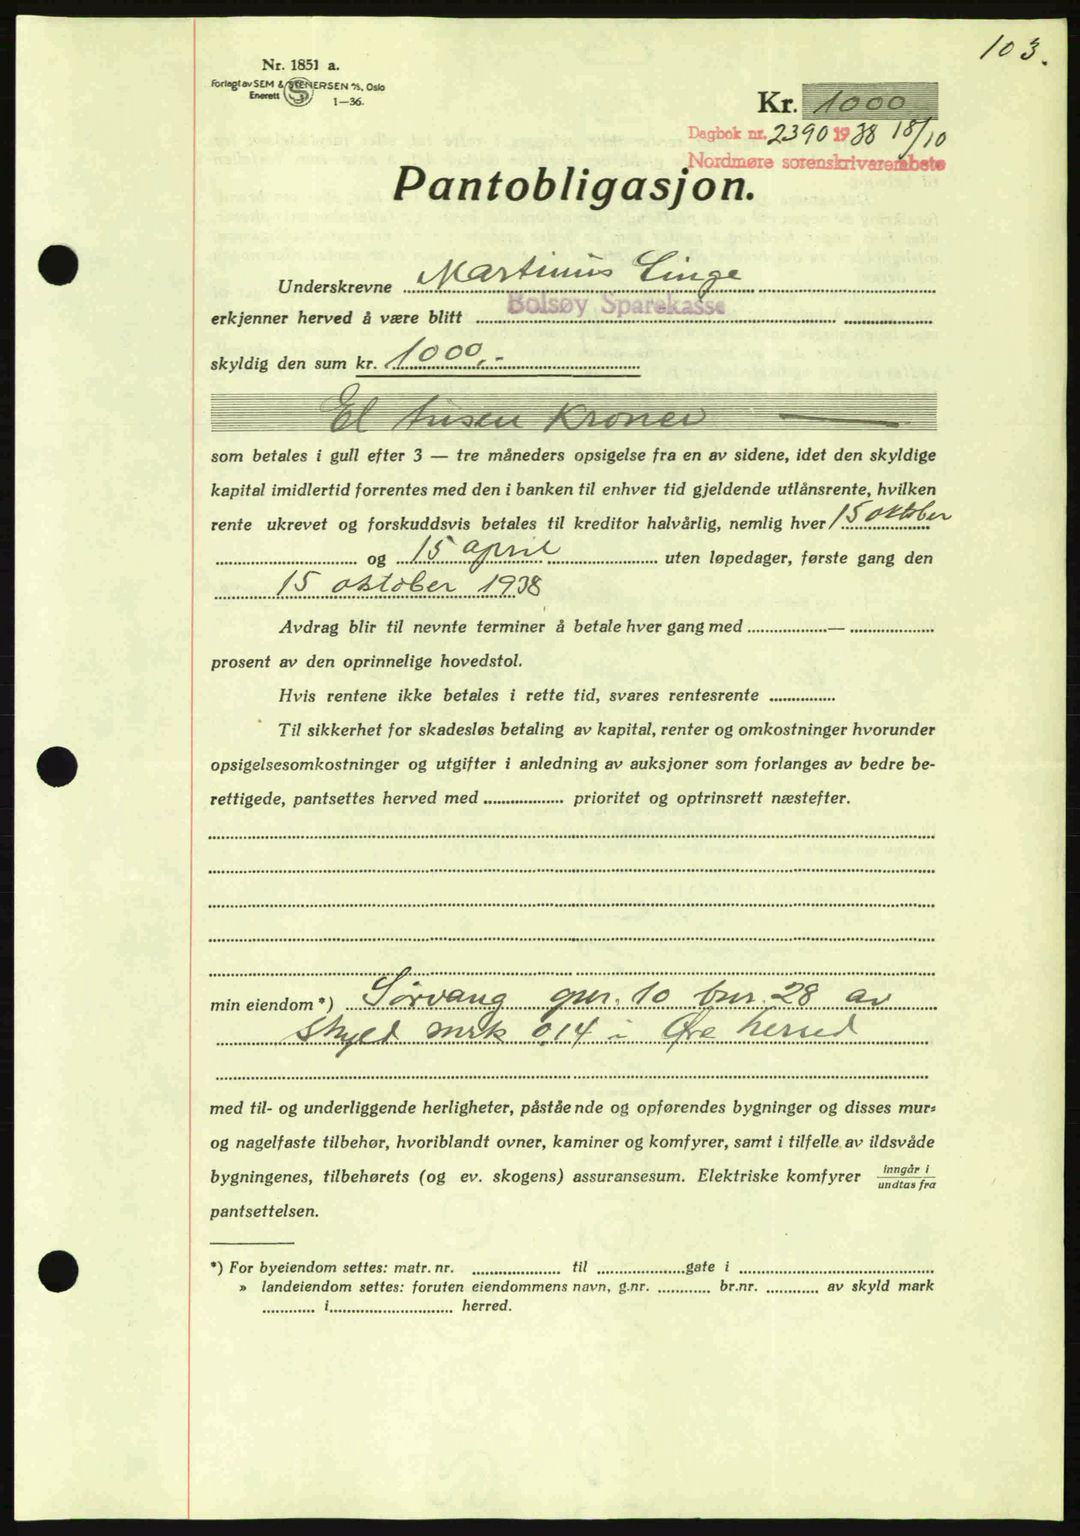 103.
Nr. 1851 a.
Forlagt av SEM & STENERSEN A/S, Oslo
Enerett 1—36.
Kr. 1000
Dagbok nr. 2390 1938 18/10
Nordmøre sorenskriverembete
Pantobligasjon.
Underskrevne Martinus Linge
erkjenner herved å være blitt Bolsøy Sparekasse
skyldig den sum kr. 1000,-
Et tusen Kroner
som betales i gull efter 3 — tre måneders opsigelse fra en av sidene, idet den skyldige
kapital imidlertid forrentes med den i banken til enhver tid gjeldende utlånsrente, hvilken
rente ukrevet og forskuddsvis betales til kreditor halvårlig, nemlig hver 15 oktober
og 15 april uten løpedager, første gang den
15 oktober 1938
Avdrag blir til nevnte terminer å betale hver gang med —
prosent av den oprinnelige hovedstol.
Hvis rentene ikke betales i rette tid, svares rentesrente
Til sikkerhet for skadesløs betaling av kapital, renter og omkostninger hvorunder
opsigelsesomkostninger og utgifter i anledning av auksjoner som forlanges av bedre be-
rettigede, pantsettes herved med prioritet og optrinsrett næstefter.
min eiendom *) Sørvang gnr. 10 bnr. 28 av
skyld mrk 0,14 i Øre herred
med til- og underliggende herligheter, påstående og opførendes bygninger og disses mur-
og nagelfaste tilbehør, hvoriblandt ovner, kaminer og komfyrer, samt i tilfelle av ildsvåde
bygningenes, tilbehørets (og ev. skogens) assuransesum. Elektriske komfyrer inngår i
undtas fra
pantsettelsen.
*) For byeiendom settes: matr. nr. til gate i
» landeiendom settes: foruten eiendommens navn, g.nr. br.nr. av skyld mark
i herred.